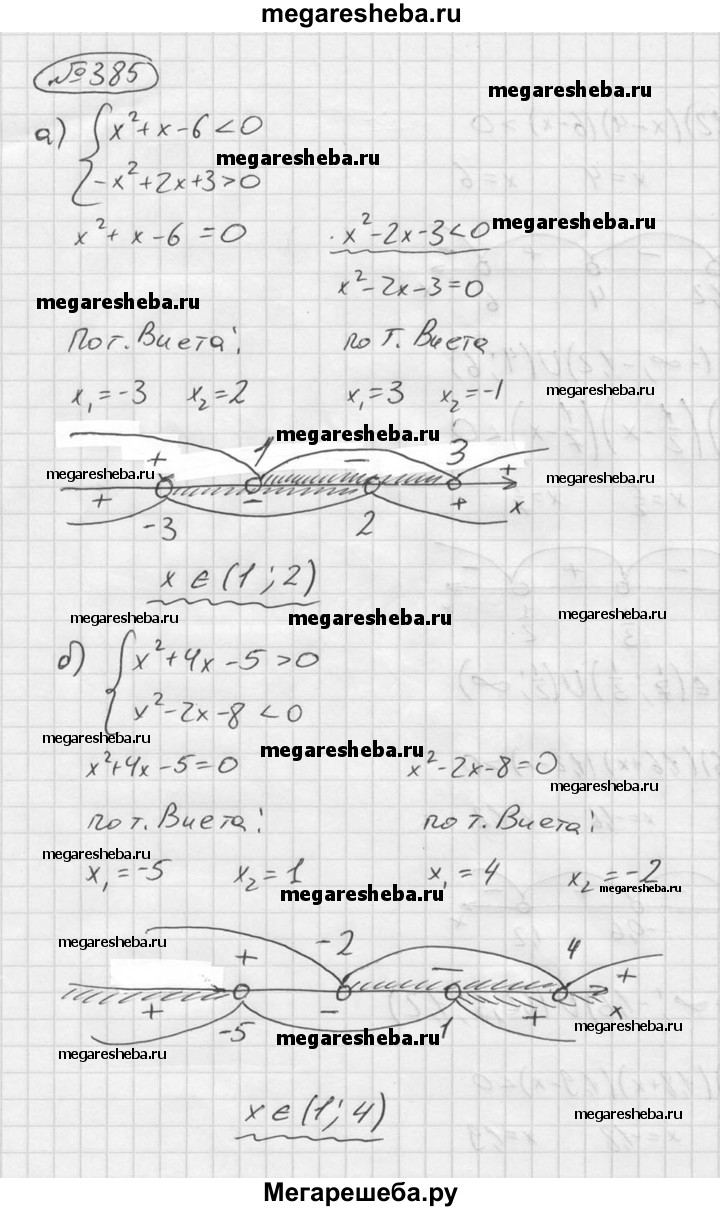 megaresheba.ru
№385
megaresheba.ru
а) { x²+x-6<0
megaresheba.ru
-x²+2x+3>0
x²+x-6=0 x²-2x-3<0
megaresheba.ru
x²-2x-3=0
megaresheba.ru
По т. Виета: по т. Виета
x₁=-3 x₂=2 x₁=3 x₂=-1
megaresheba.ru
megaresheba.ru
+ 1 - 3 +
megaresheba.ru
megaresheba.ru
+ -3 - 2 + x
x∈(1;2)
megaresheba.ru
megaresheba.ru
megaresheba.ru
б) { x²+4x-5>0
x²-2x-8<0
megaresheba.ru
megaresheba.ru
x²+4x-5=0 x²-2x-8=0
megaresheba.ru
по т. Виета: по т. Виета:
megaresheba.ru
x₁=-5 x₂=1 x₁=4 x₂=-2
megaresheba.ru
megaresheba.ru
megaresheba.ru
+ -2 - 4 +
+ -5 - 1 + x
megaresheba.ru
megaresheba.ru
megaresheba.ru
x∈(1;4)
megaresheba.ru
Мегарешеба.ру